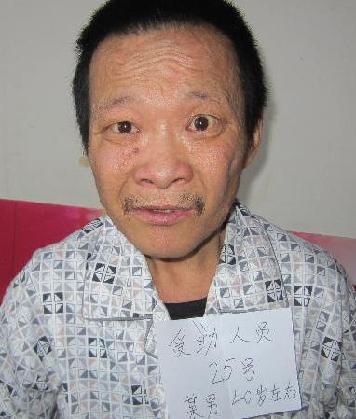 受助人员
25号
某男 40岁左右